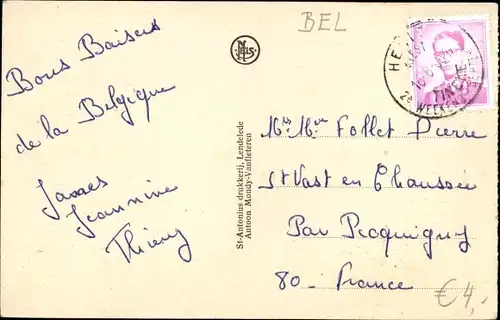 BEL
Bons Baisers
de la Belgique
James
Jeannine
Thierry
St-Antonius drukkerij, Lendelede
Antoon Moody-Vanfleteren
Mr Mme Follet Pierre
St Vast en Chaussée
Par Picquigny
80 - France
€ 4,-